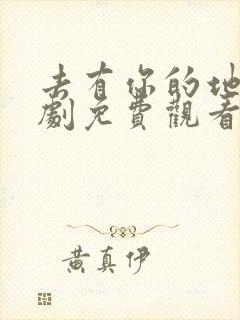 去有你的地
劇免費觀看
黃真伊